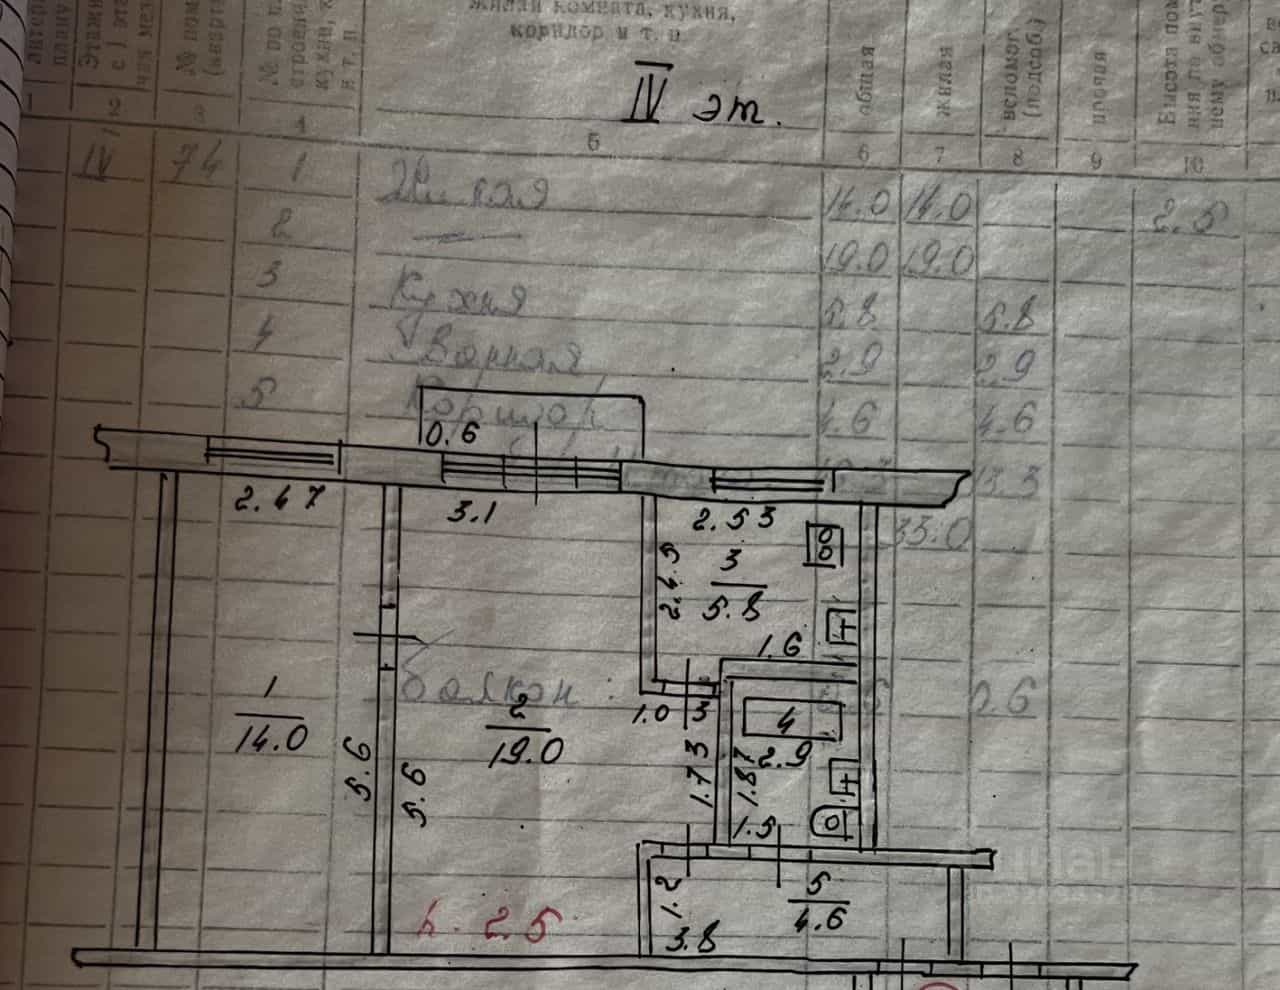 жилая комната, кухня,
коридор и т. п
IV эт.
общая
жилая
вспомог. (подсоб)
прочая
2
3
4
5
6
7
8
9
10
IV 74 1 Жилая 14.0 14.0 2.5
2 19.0 19.0
3 Кухня 5.8 5.8
4 Ванная 2.9 2.9
5 Коридор 4.6 4.6
0.6
13.3
2.47
3.1
2.53
33.0
2.45
3
5.8
1.6
Балкон: 0.6
1
14.0
2
19.0
1.0
3
4
2.9
5.6
5.6
1.73
1.87
1.5
h. 2.5
1.2
3.8
5
4.6